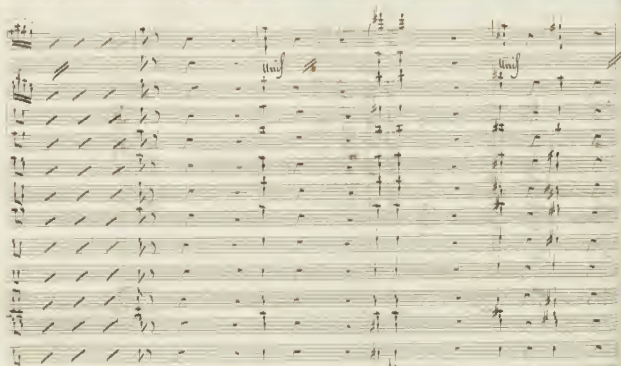 Unis Unis